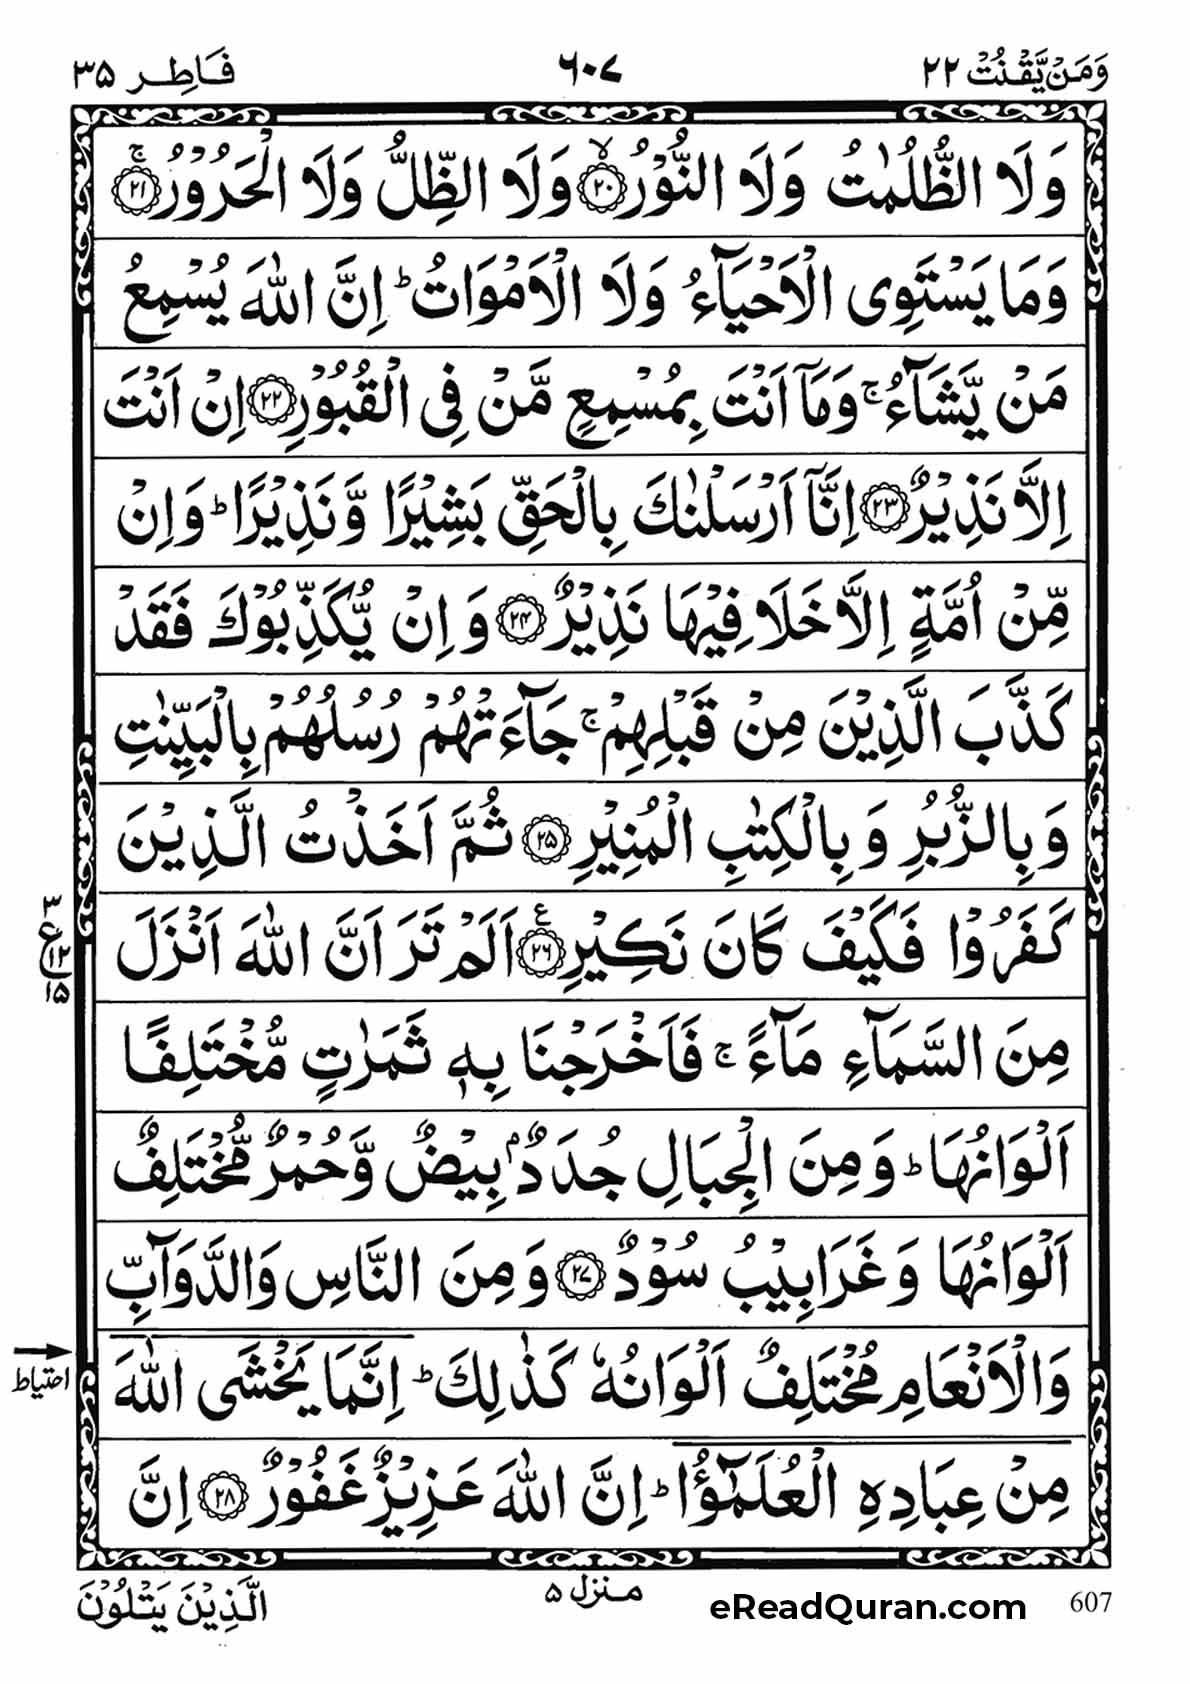 وَمَنْ يَّقْنُتْ ٢٢ ٦٠٧ فَاطِر ٣٥
وَلَا الظُّلُمٰتُ وَلَا النُّوْرُ ۙ‏﴿۲۰﴾ وَلَا الظِّلُّ وَلَا الْحَرُوْرُ ۚ‏﴿۲۱﴾
وَمَا يَسْتَوِى الْاَحْيَآءُ وَلَا الْاَمْوَاتُ ؕ اِنَّ اللّٰهَ يُسْمِعُ
مَنْ يَّشَآءُ ۚ وَمَاۤ اَنْتَ بِمُسْمِعٍ مَّنْ فِى الْقُبُوْرِ ﴿۲۲﴾ اِنْ اَنْتَ
اِلَّا نَذِيْرٌ ﴿۲۳﴾ اِنَّاۤ اَرْسَلْنٰكَ بِالْحَقِّ بَشِيْرًا وَّنَذِيْرًا ؕ وَاِنْ
مِّنْ اُمَّةٍ اِلَّا خَلَا فِيْهَا نَذِيْرٌ ﴿۲۴﴾ وَاِنْ يُّكَذِّبُوْكَ فَقَدْ
كَذَّبَ الَّذِيْنَ مِنْ قَبْلِهِمْ ۚ جَآءَتْهُمْ رُسُلُهُمْ بِالْبَيِّنٰتِ
وَبِالزُّبُرِ وَبِالْكِتٰبِ الْمُنِيْرِ ﴿۲۵﴾ ثُمَّ اَخَذْتُ الَّذِيْنَ
كَفَرُوْا فَكَيْفَ كَانَ نَكِيْرِ ﴿۲۶﴾ع اَلَمْ تَرَ اَنَّ اللّٰهَ اَنْزَلَ
٣ ع ١٢ ١٥
مِنَ السَّمَآءِ مَآءً ۚ فَاَخْرَجْنَا بِهٖ ثَمَرٰتٍ مُّخْتَلِفًا
اَلْوَانُهَا ؕ وَمِنَ الْجِبَالِ جُدَدٌۢ بِيْضٌ وَّحُمْرٌ مُّخْتَلِفٌ
اَلْوَانُهَا وَغَرَابِيْبُ سُوْدٌ ﴿۲۷﴾ وَمِنَ النَّاسِ وَالدَّوَآبِّ
وَالْاَنْعَامِ مُخْتَلِفٌ اَلْوَانُهٗ كَذٰلِكَ ؕ اِنَّمَا يَخْشَى اللّٰهَ
احتیاط
مِنْ عِبَادِهِ الْعُلَمٰٓؤُا ؕ اِنَّ اللّٰهَ عَزِيْزٌ غَفُوْرٌ ﴿۲۸﴾ اِنَّ
607 eReadQuran.com منزل ۵ الَّذِيْنَ يَتْلُوْنَ